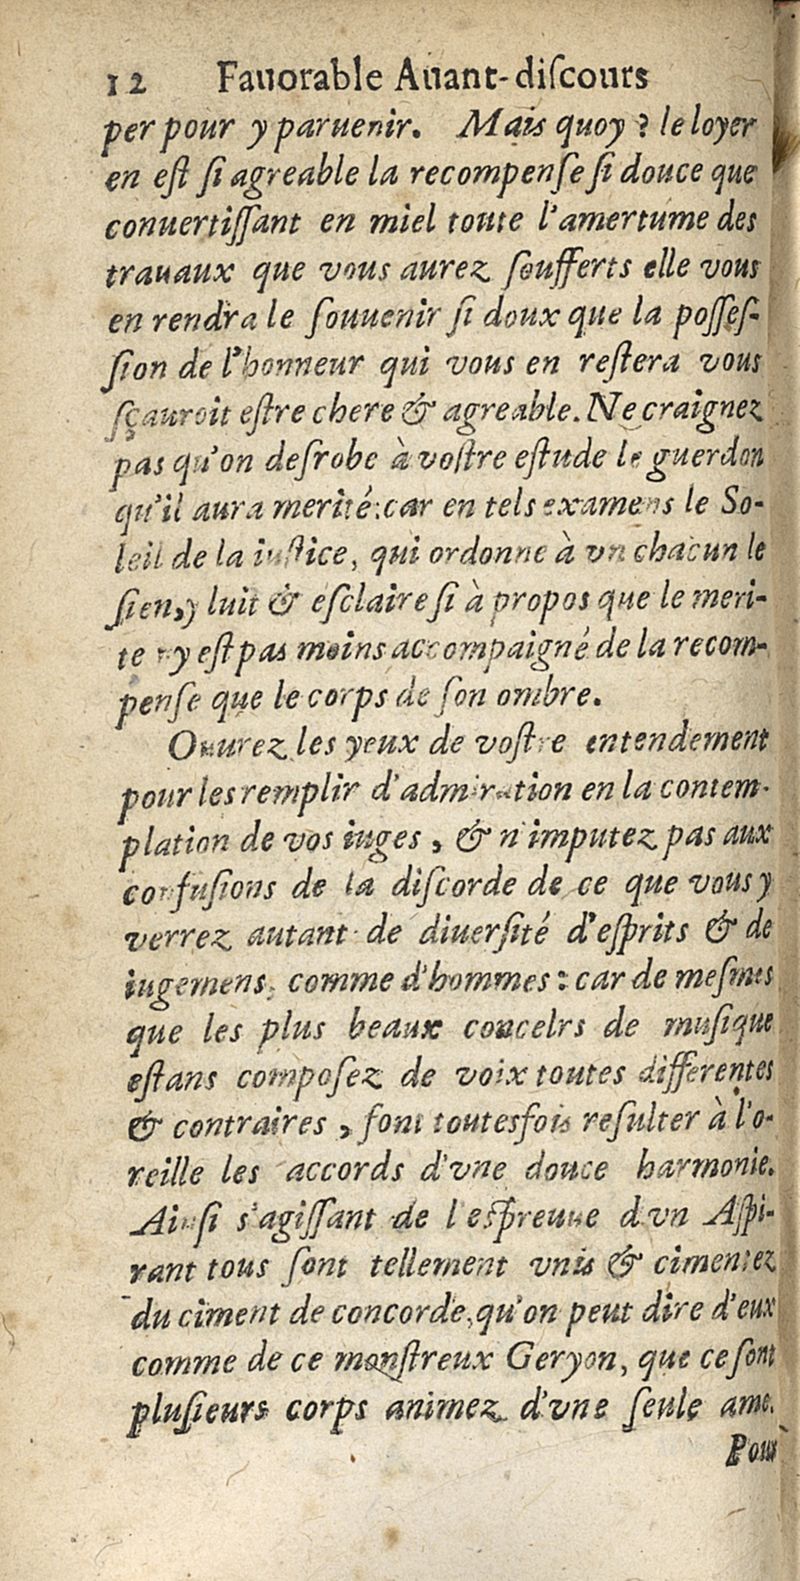 12 Fauorable Auant-diſcours
per pour y paruenir. Mais quoy ? le loyer
en eſt ſi agreable la recompenſe ſi douce que
conuertiſſant en miel toute l'amertume des
trauaux que vous aurez ſoufferts elle vous
en rendra le ſouuenir ſi doux que la poſſeſ-
ſion de l'honneur qui vous en reſtera vous
ſçauroit eſtre chere & agreable. Ne craignez
pas qu'on deſrobe à voſtre eſtude le guerdon
qu'il aura merité: car en tels examens le So-
leil de la iuſtice, qui ordonne à vn chacun le
ſien, y luit & eſclaire ſi à propos que le meri-
te n'y eſt pas moins accompaigné de la recom-
penſe que le corps de ſon ombre.
Ouurez les yeux de voſtre entendement
pour les remplir d'admiration en la contem-
plation de vos iuges, & n'imputez pas aux
confuſions de la diſcorde de ce que vous y
verrez autant de diuerſité d'eſprits & de
iugemens, comme d'hommes : car de meſmes
que les plus beaux concelrs de muſique
eſtans compoſez de voix toutes differentes
& contraires, font toutesfois reſulter à l'o-
reille les accords d'vne douce harmonie.
Ainſi s'agiſſant de l'eſpreuue d'vn Aſpi-
rant tous ſont tellement vnis & cimentez
du ciment de concorde, qu'on peut dire d'eux
comme de ce monſtreux Geryon, que ce ſont
pluſieurs corps animez d'vne ſeule ame.
Pour